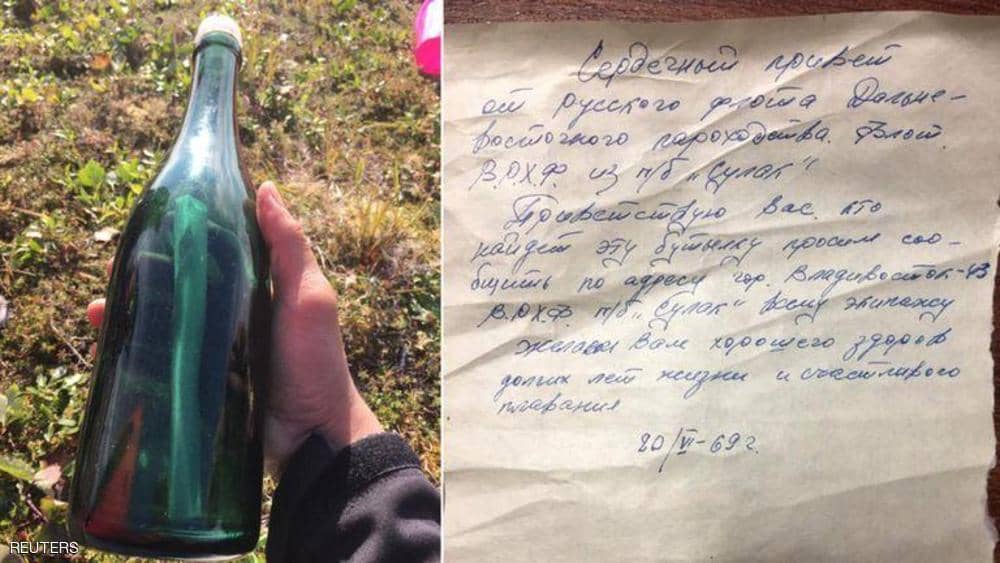 Сердечный привет
от русского флота Дальне-
восточного пароходства. Флот
В.Р.Х.Ф. из т/б "Сулак"
Приветствую Вас кто
найдет эту бутылку просим соо-
бщить по адресу гор. Владивосток-43
В.Р.Х.Ф. т/б "Сулак" всему экипажу
желаем Вам хорошего здоров
долгих лет жизни и счастливого
плавания
20/VI-69 г.
REUTERS